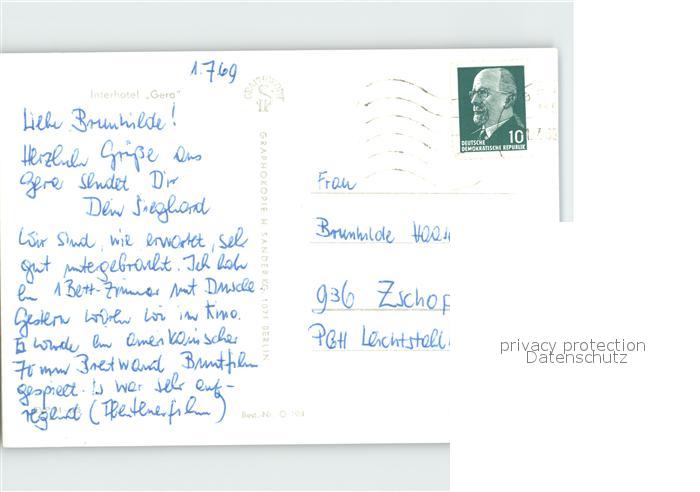 1.7.69
Interhotel „Gera"
Liebe Brunhilde!
Herzliche Grüße aus
Gera sendet Dir
Dein Sieghard
Wir sind, wie erwartet, sehr
gut untergebracht. Ich hab
ein 1 Bett-Zimmer mit Dusche
Gestern waren wir im Kino.
Es wurde ein amerikanischer
70 mm Breitwand Buntfilm
gespielt. Es war sehr auf-
regend
GRAPHOKOPIE H. SANDER KG, 1071 BERLIN
Best.-Nr.
10
DEUTSCHE
DEMOKRATISCHE REPUBLIK
Frau
Brunhilde
936 Zschop
PGH
privacy protection
Datenschutz